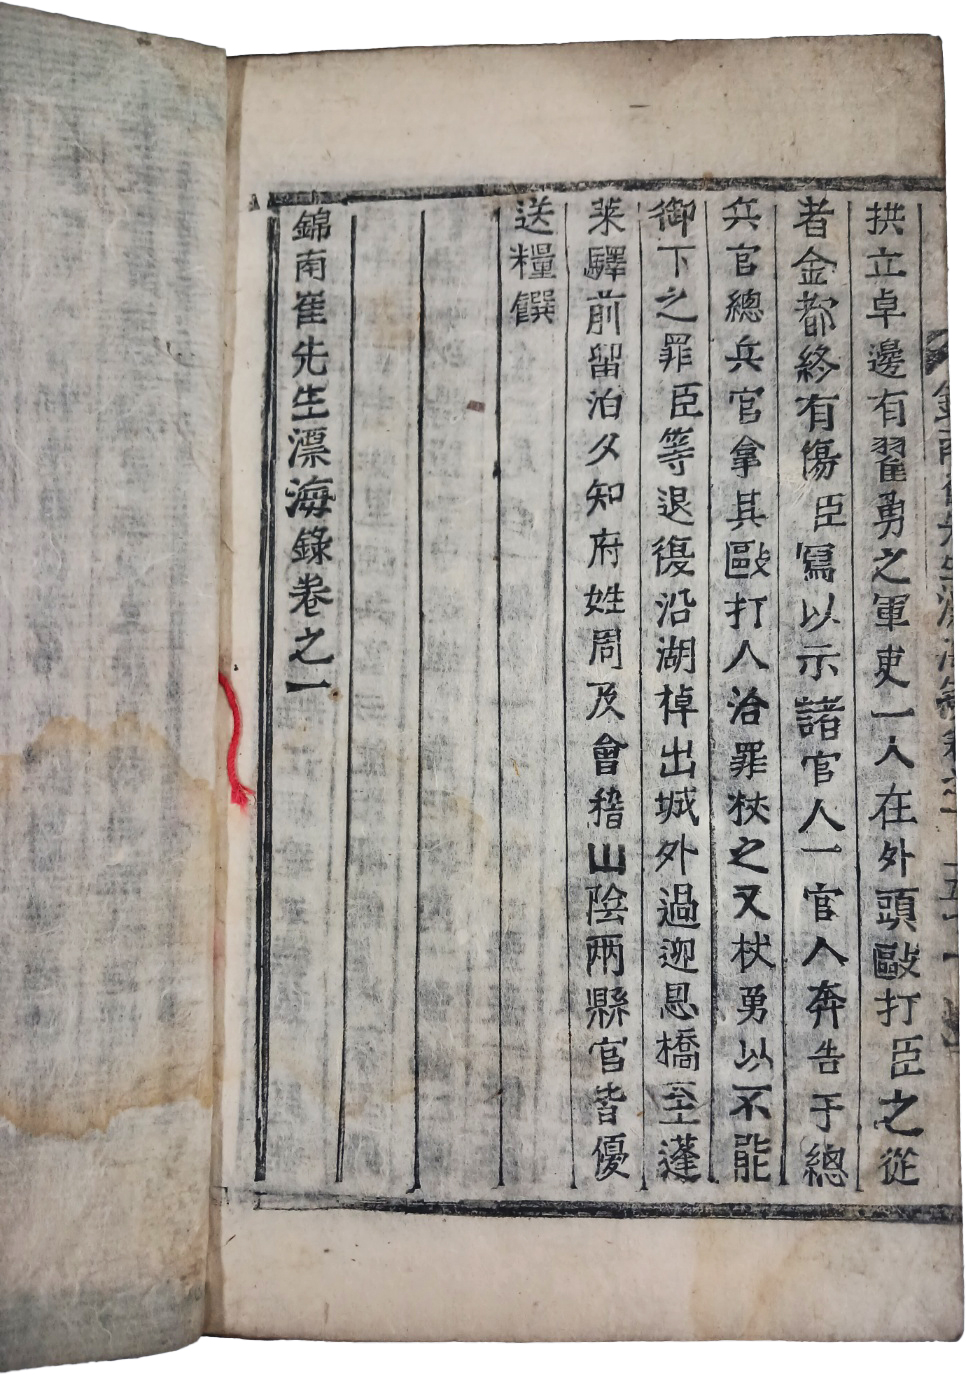 拱立卓邊有翟勇之軍吏一人在外頭毆打臣之從
者金都終有傷臣寫以示諸官人一官人奔告于總
兵官總兵官拿其毆打人治罪杖之又杖勇以不能
御下之罪臣等退復沿湖棹出城外過迎恩橋至蓬
萊驛前留泊夕知府姓周及會稽山陰兩縣官皆優
送糧饌
錦南崔先生漂海錄卷之一